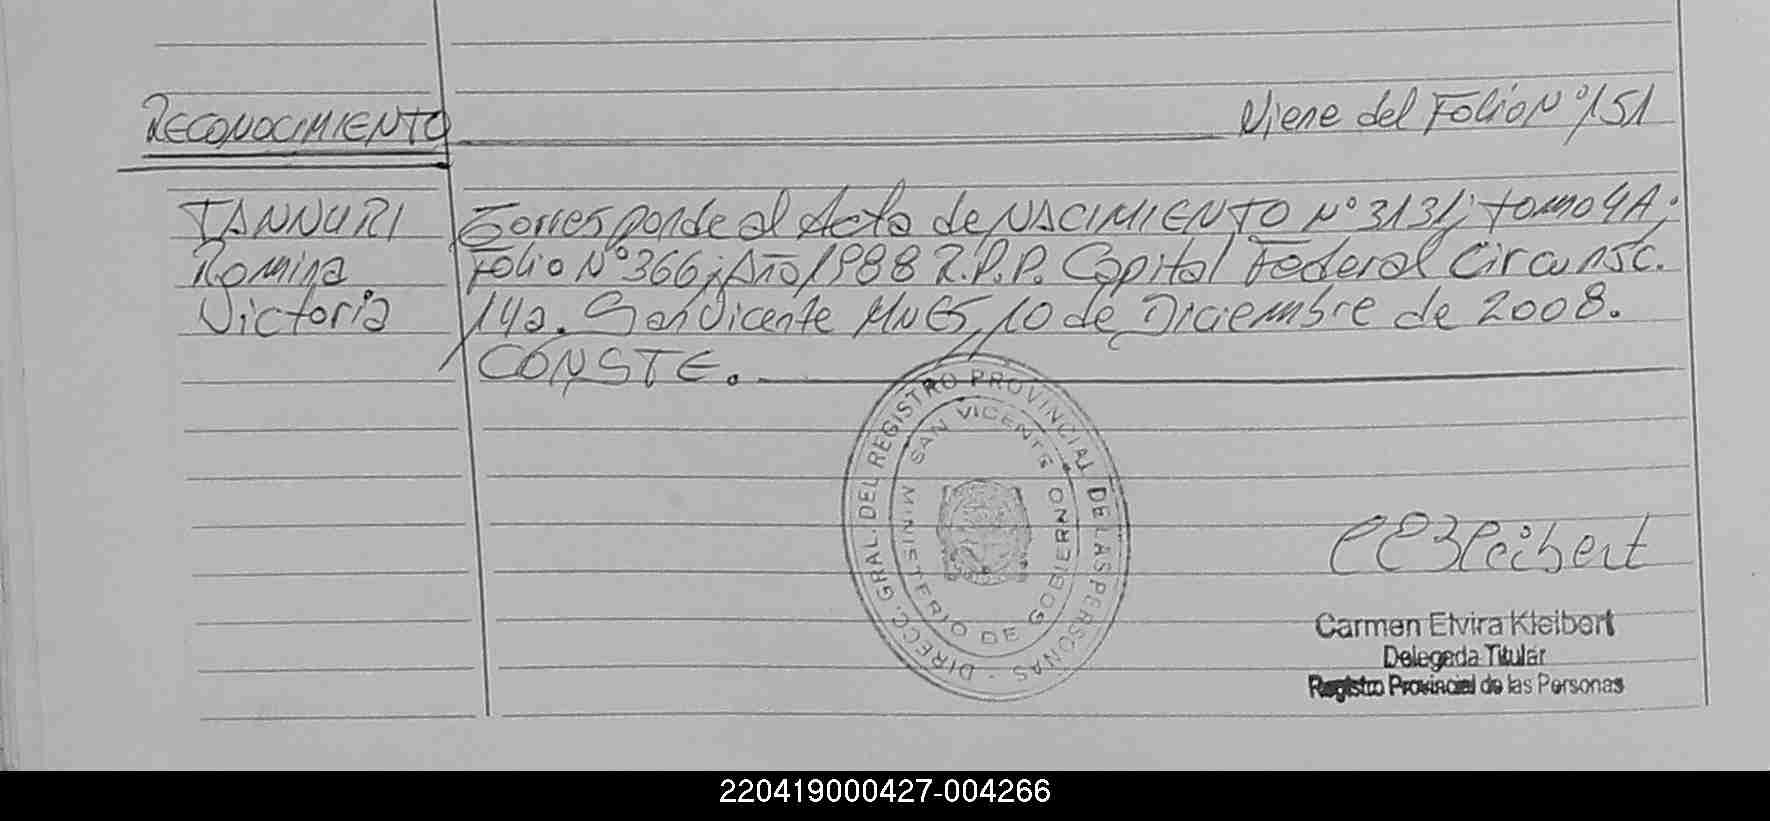 RECONOCIMIENTO
Viene del Folio Nº 151
TANNURI
Romina
Victoria
Corresponde al Acta de NACIMIENTO Nº 3131; tomo 4A;
Folio Nº 366; Año 1988 R.P.P. Capital Federal Circunsc.
14a. San Vicente MNES, 10 de Diciembre de 2008.
CONSTE.
DIRECC. GRAL. DEL REGISTRO PROVINCIAL DE LAS PERSONAS -
SAN VICENTE
MINISTERIO DE GOBIERNO
CEKleibert
Carmen Elvira Kleibert
Delegada Titular
Registro Provincial de las Personas
220419000427-004266